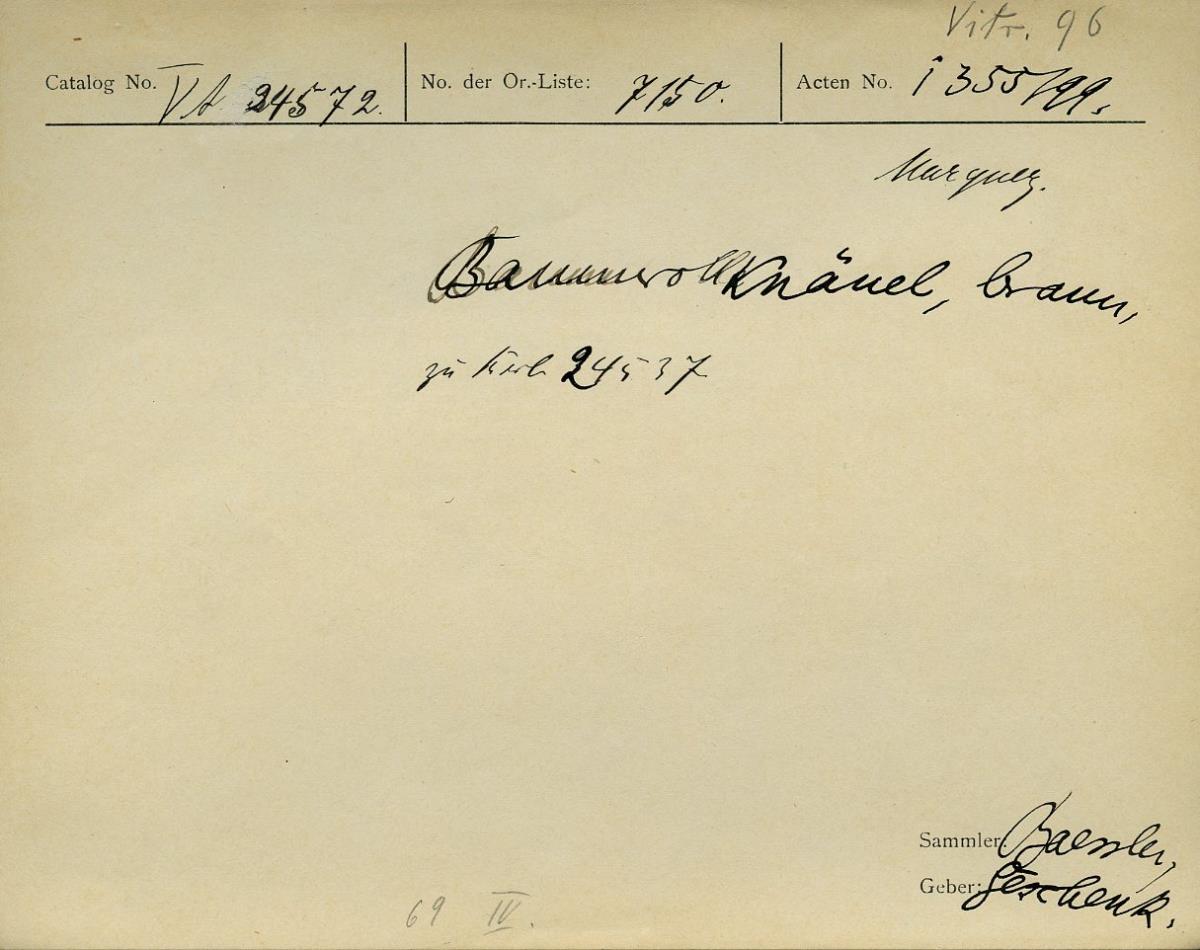 Vitr. 96
Catalog No. VA 24572. No. der Or.-Liste: 7150. Acten No. I 355/99.
Marquez.
Baumwollknäuel, braun,
zu Korb 24537
Sammler: Baessler,
Geber: Geschenk.
69 IV.